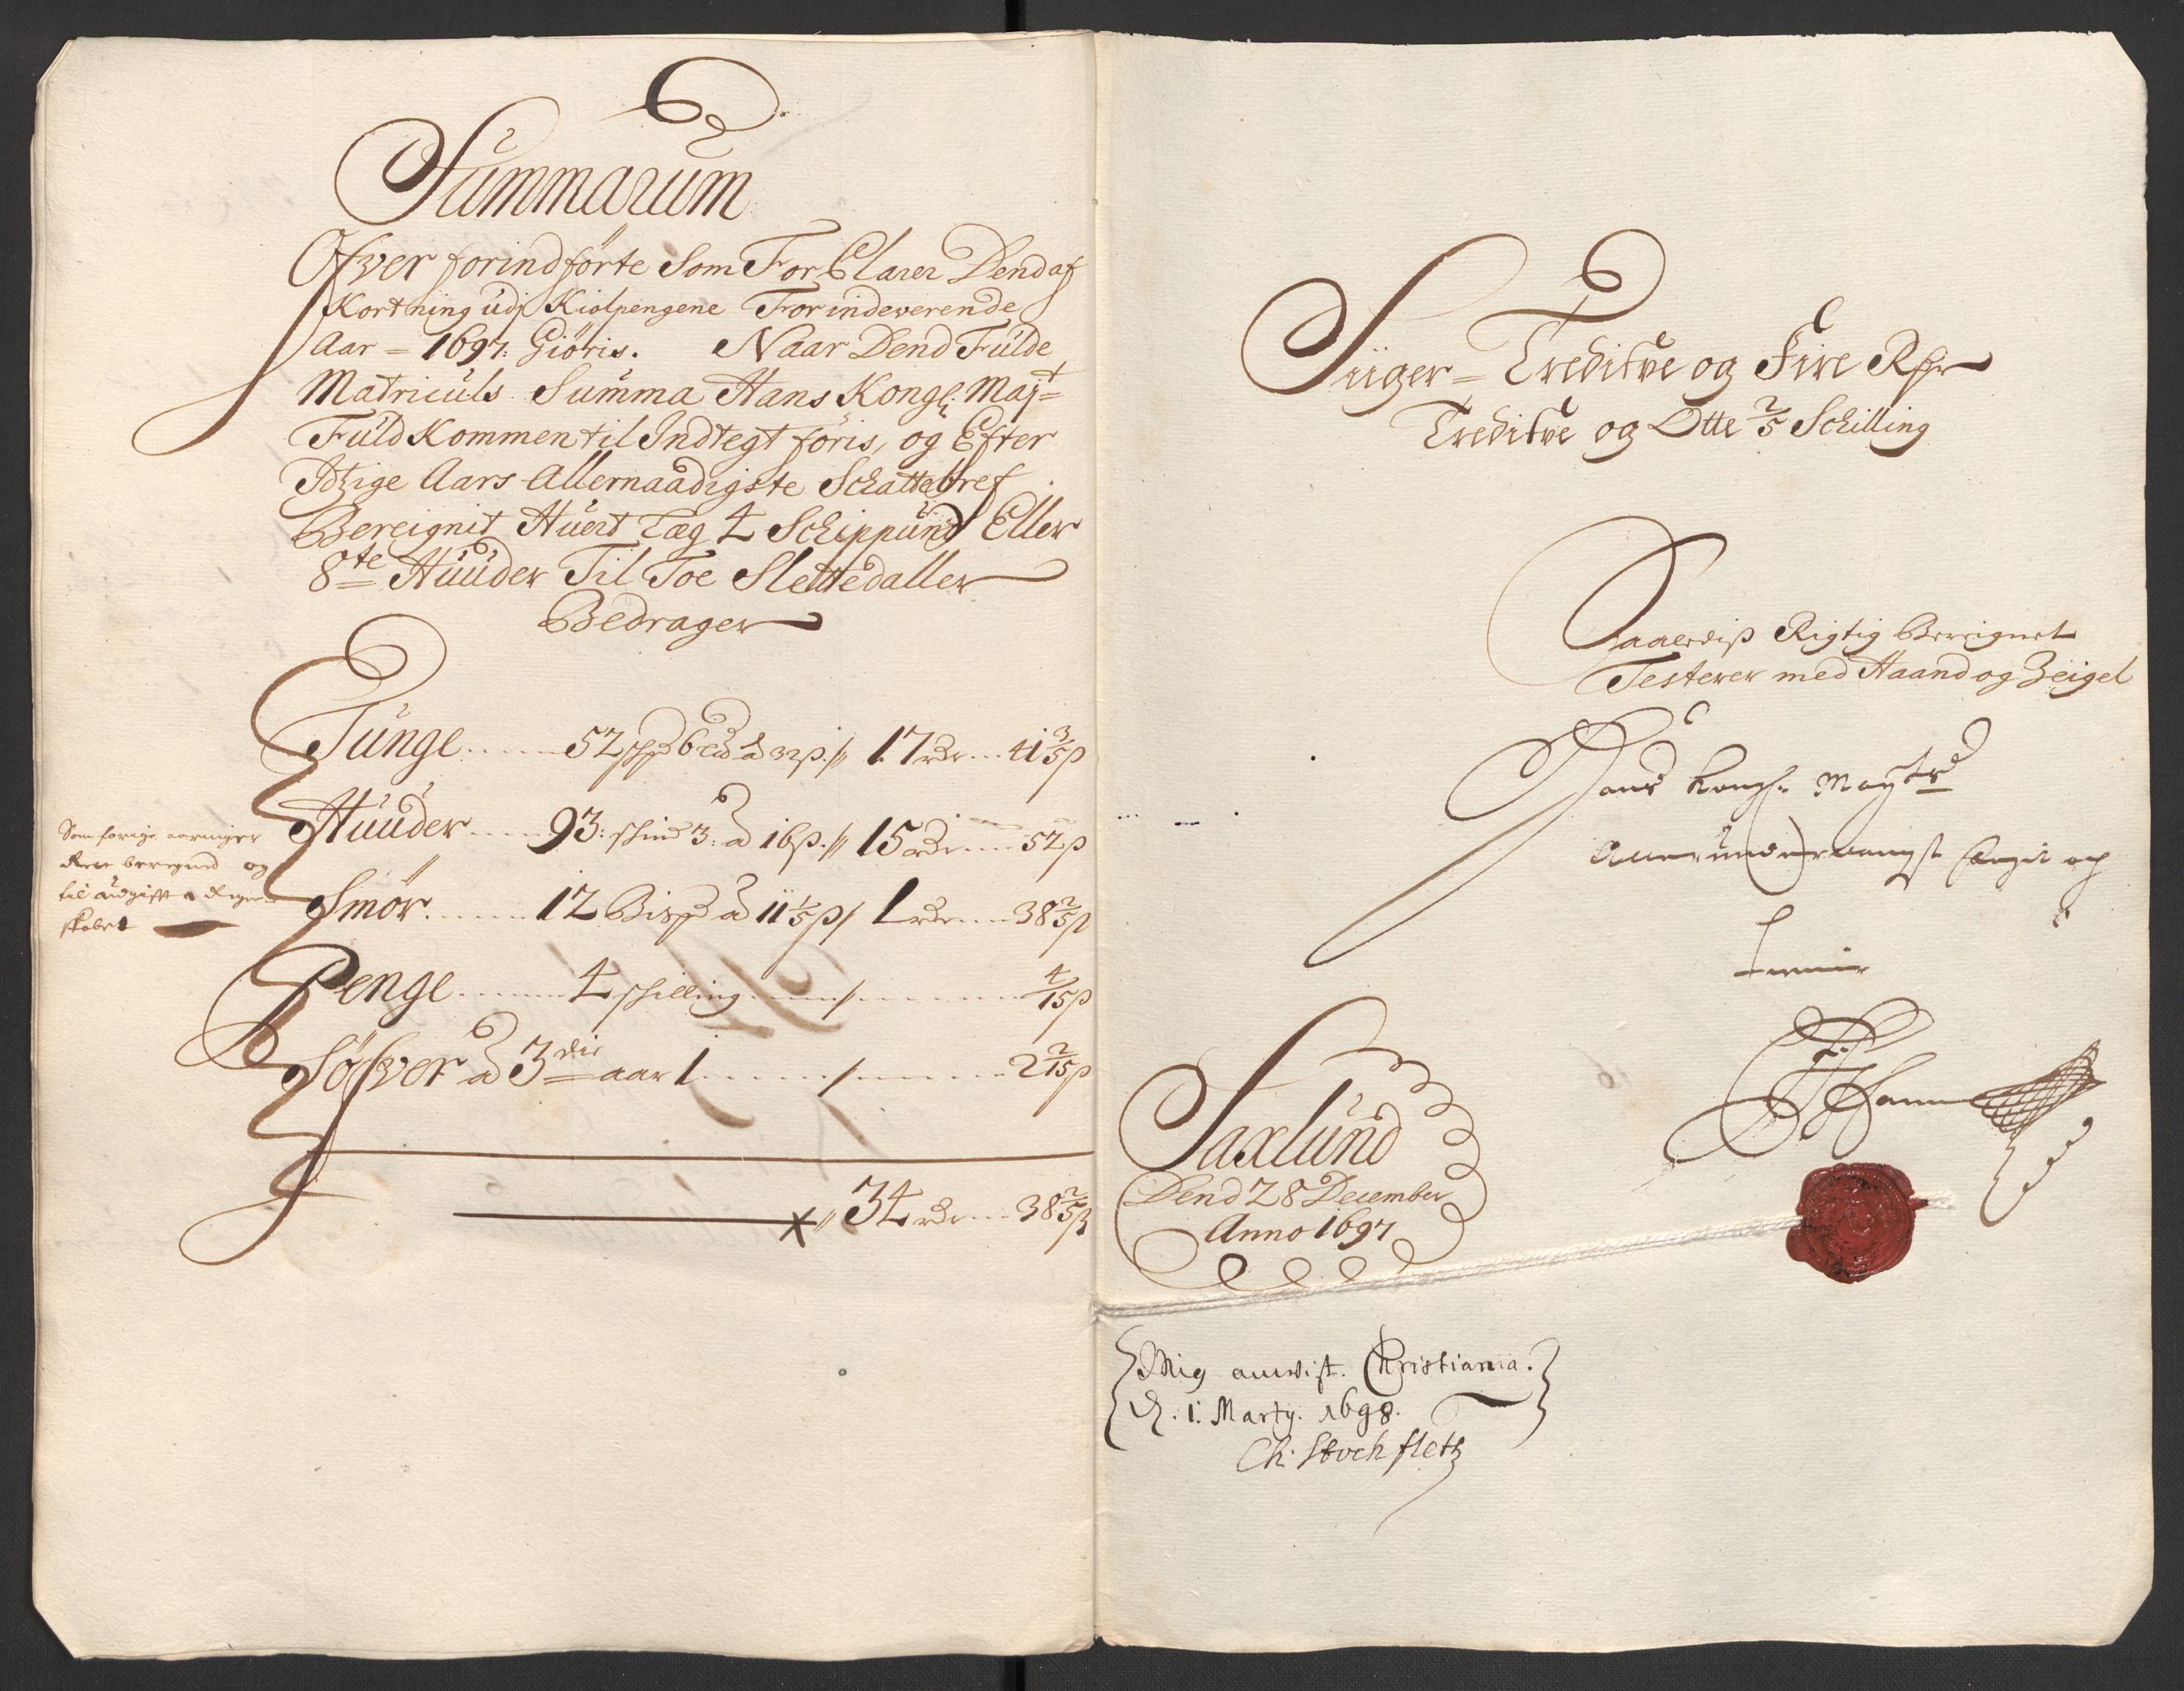 Summarum
Ofver forindførte Som ForElarer Dend af
Kortning udj Kiolpengene For indeverende
Aar = 1697: Giøris. Naar Dend Fulde
Matriculs Summa Hans Kongl: Majt=
Fuld Kommen til Indtegt føris, og Efter
Itzige Aars Allernaadigste Schattebref
Bereignit Huert Læg 4 Schippund Eller
8te Huuder Til Toe Slettedaller
Bedrager
Tunge 52 schpd 6 ad 32 ß // 17 rdr 41 3/5 ß
Huuder 93: schind 3: ad 16 ß // 15 rdr 52 ß
Som forige aaringer
bereigned og
til udgift
skabet
Smør 12 Bispd ad 11 1/5 ß / 1 rdr 38 2/5 ß
Penge 4 schilling / 4/15 ß
Søfver ad 3die aar 1 / 2 2/15 ß
// 34 rdr 38 2/5 ß
Siiger = Tredifve og Fire Rdr
Tredifve og Otte 2/5 Schilling
Saaledis Rigtig Bereignet
Testerer med Haand og Zeigel
Hans Kongl. Mayts
Allerunderdanigst og
Saxlund
Dend 28 December
Anno 1697
Mig anvist. Christiania.
d. 1: Marty. 1698.
Ch: Stockfleth